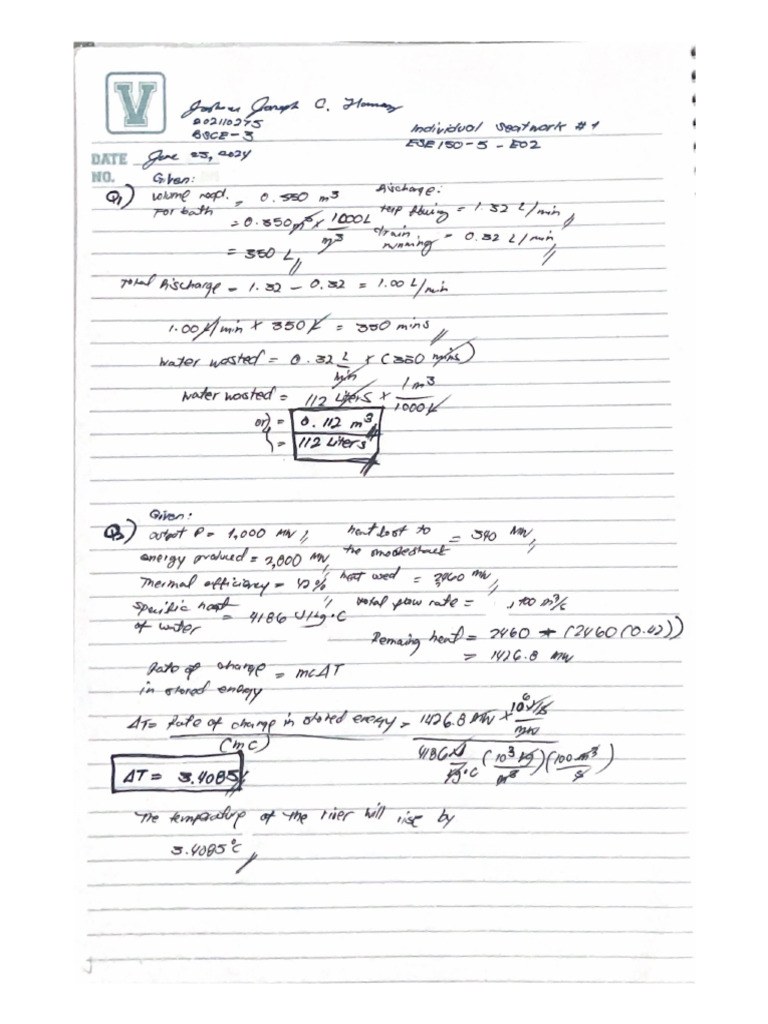 V
Joshua Joseph C.
202110275
BSCE-3
Individual Seatwork #1
ESE150-5-E02
DATE June 25, 2024
NO.
Given:
Q1) Volume reqd. For bath = 0.350 m³
Discharge:
= 0.350 m³ x 1000L / m³
tap flowing = 1.32 L/min
= 350 L
drain running = 0.32 L/min
Total Discharge = 1.32 - 0.32 = 1.00 L/min
1.00 L/min x 350 L = 350 mins
Water wasted = 0.32 L/min x (350 mins)
Water wasted = 112 Liters x 1 m³ / 1000 L
or = 0.112 m³
= 112 Liters
Given:
Q2) output P = 1,000 MW, heat lost to the smokestack = 340 MW
energy produced = 2,800 MW
Thermal efficiency = 42% heat used = 2,460 MW
specific heat of water = 4186 J/kg·C total flow rate = 100 m³/s
Remaing heat = 2460 - (2460(0.42))
= 1426.8 MW
Rate of change in stored energy = mcΔT
ΔT = Rate of change in stored energy / (mc) = 1426.8 MW x 10⁶ J/s / MW / 4186 J/kg·C (10³ kg/m³)(100 m³/s)
ΔT = 3.4085
The temperature of the river will rise by
3.4085°C